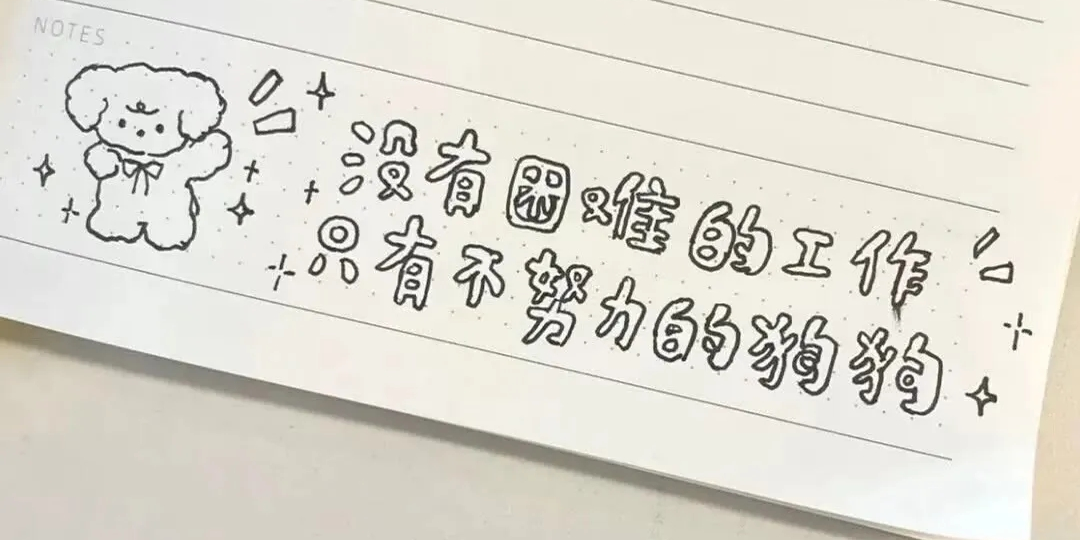 NOTES
没有困难的工作
只有不努力的狗狗